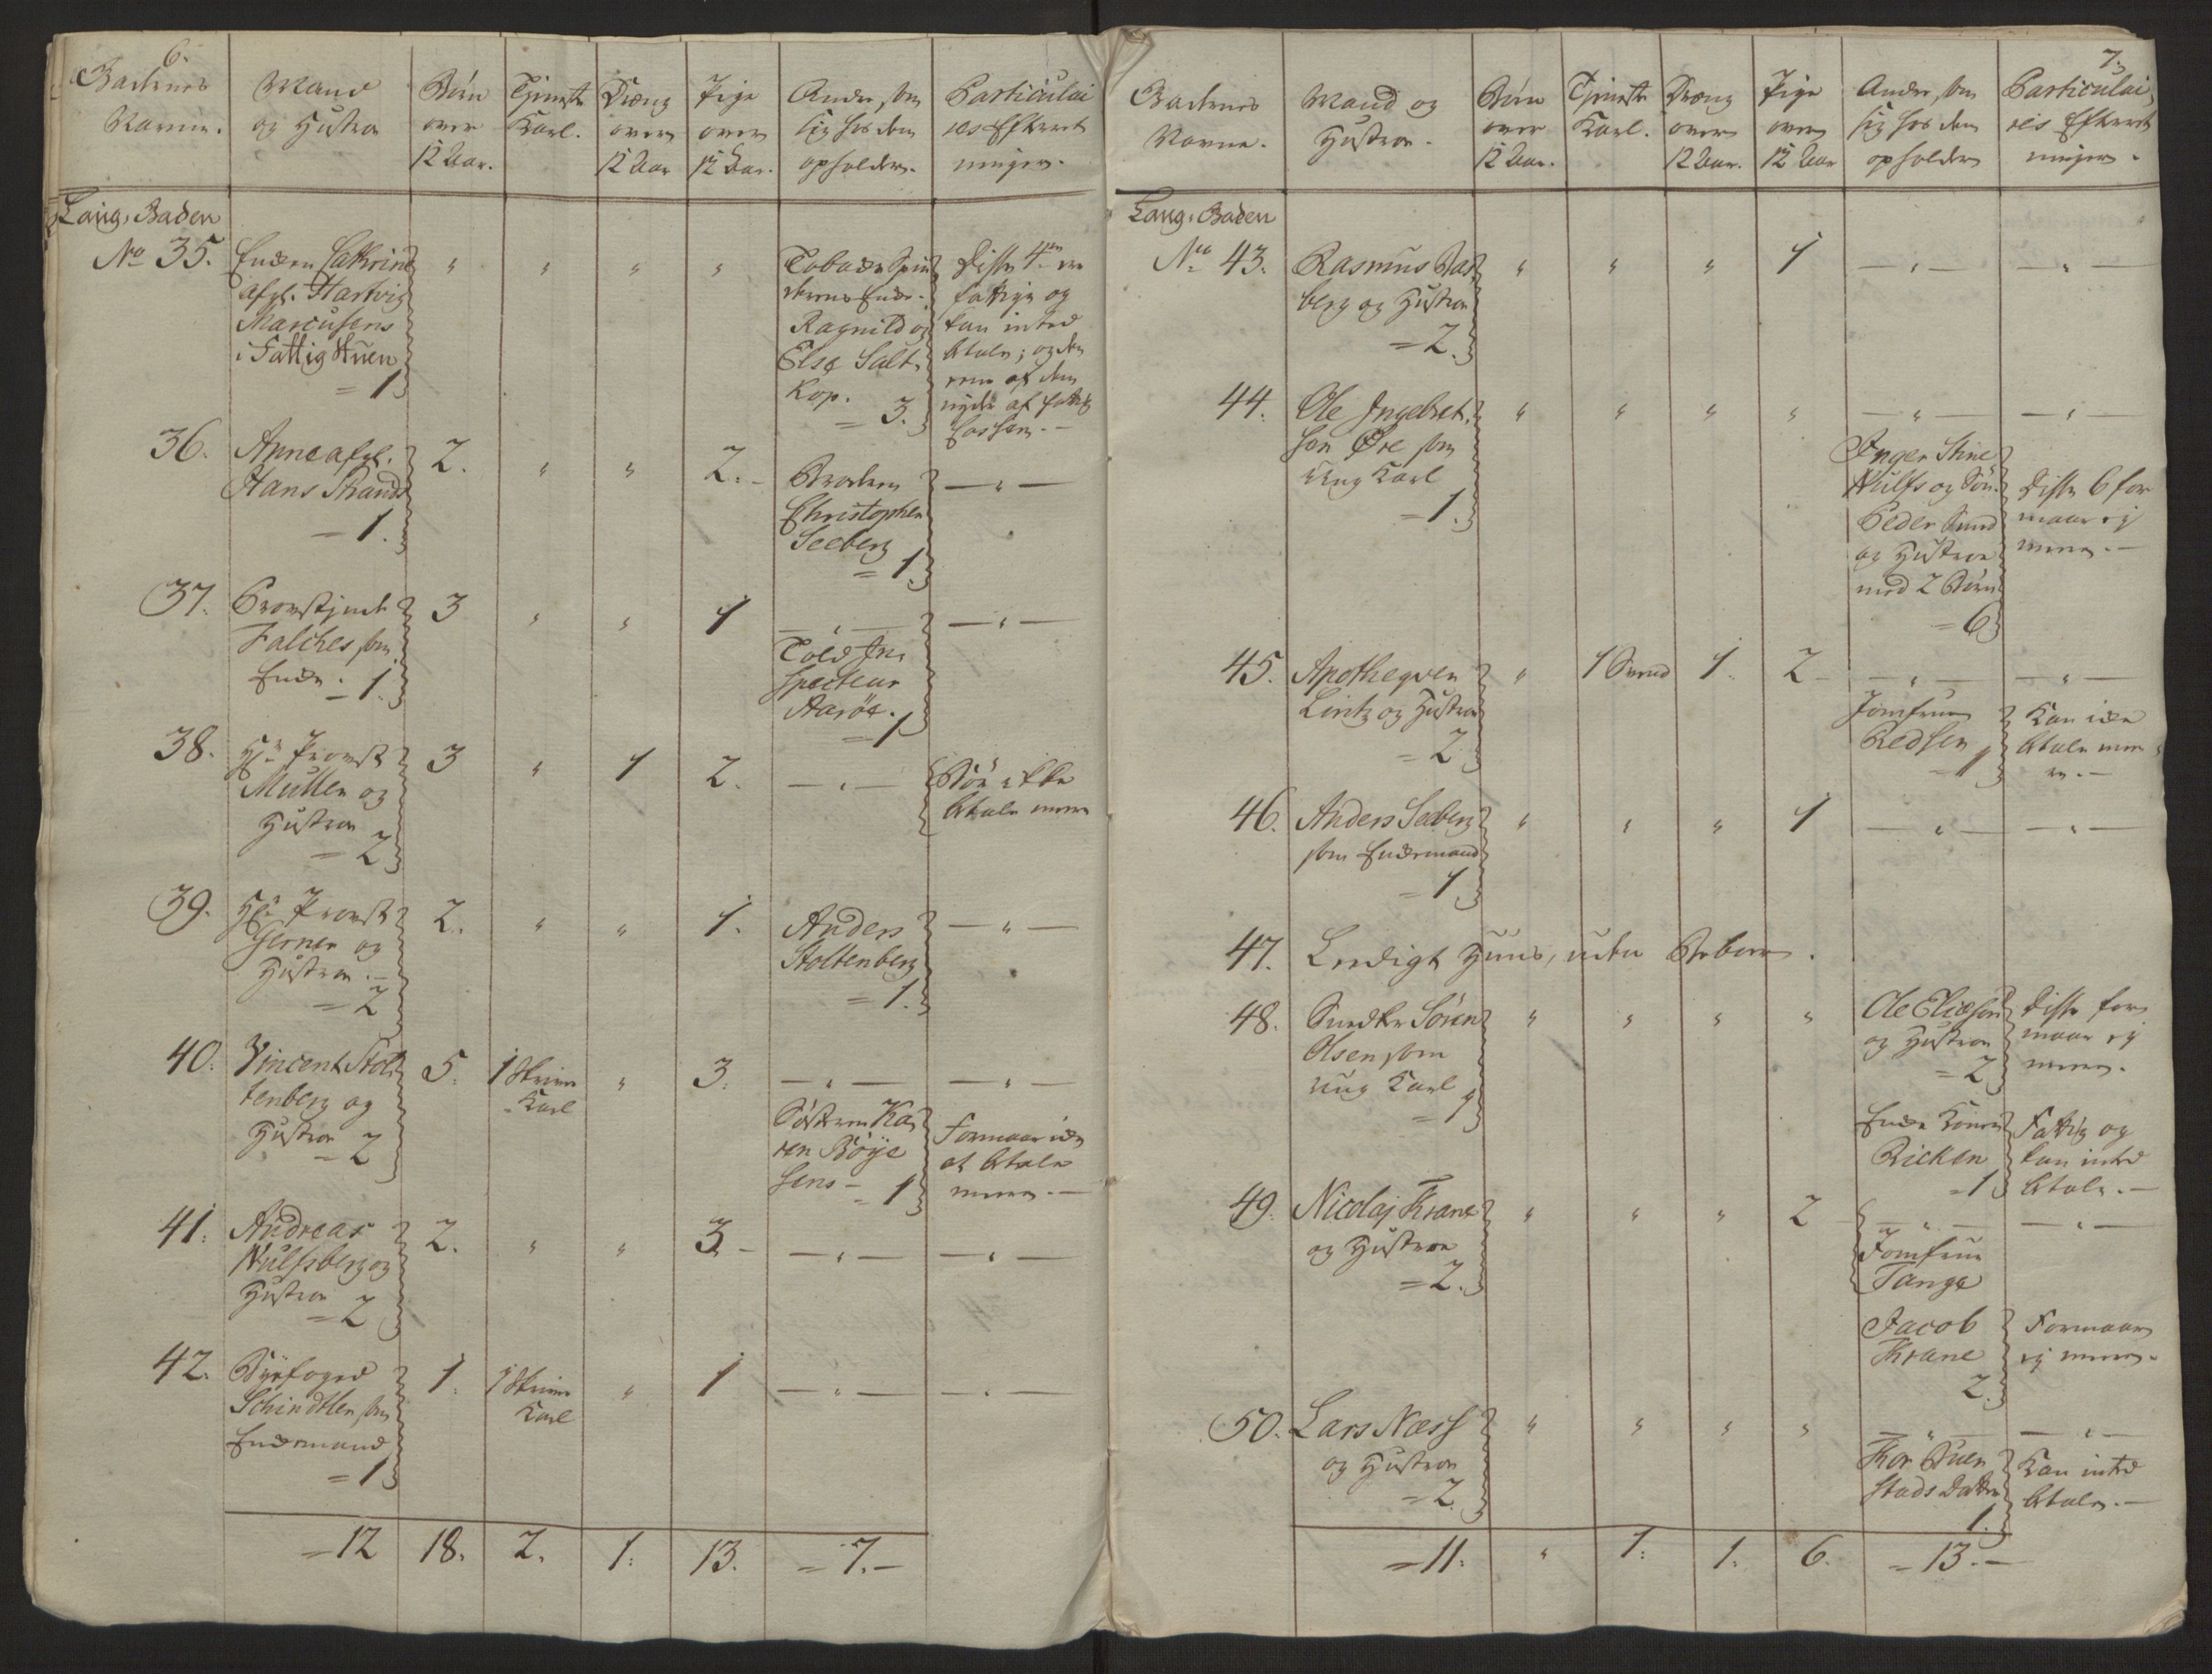 6.
Gadernes
Navne.
Mand
og Hustroe
Børn
over
12 Aar.
Tjeneste
Karl.
Dræng
over
12 Aar
Pige
over
12 Aar.
Andre, som
sig hos dem
opholder.
Particulai
res Efterret
ninger.
Lang-Gaden
No 35.
Enken Cathrine
afgl. Hartvig
Marcusens
i Fattig Huen
= 1
"
"
"
"
Ragnild og
Else Salt-
Kop.
= 3.
Disse 4re ere
fattige og
kan intet
betale; og den
eene af dem
nyder af fattig
Cassen. -
36.
Anne afgl.
Hans Strands
- 1.
2.
"
"
2. -
Broderen
Christopher
Seeberg
= 1
— " —
37.
Provstjnde
Falches som
Enke.
- 1.
3
"
"
1
— " —
Told In-
specteur
Aaröe.
= 1
— " —
38.
Hr. Provst
Müller og
Hustroe
= 2
3
"
1
2.
— " —
Bör ikke
betale meere
39.
Hr. Provst
Gerner og
Hustroe. -
= 2
2.
"
"
1.
Anders
Stoltenberg
= 1.
— " —
40.
Vincent Stol-
tenberg og
Hustroe
= 2
5.
1 Skriver
Karl
"
3.
— " —
Sösteren Ka-
ren Böye
sens -
= 1
— " —
Formaar ikke
at betale
meere. —
41.
Andreas
Wulfsberg og
Hustroe
= 2
2.
"
"
3 -
— " —
— " —
42.
Byefoged
Schindtler, som
Enkemand
= 1
1.
1 Skriver
Karl
"
1
— " —
— " —
= 12
18.
2.
1.
13.
= 7. -
7.
Gadernes
Navne.
Mand og
Hustroe.
Børn
over
12 Aar.
Tjeneste
Karl.
Dræng
over
12 Aar.
Pige
over
12 Aar
Andre, som
sig hos dem
opholder
Particulai
res Efterret
ninger.
Lang-Gaden
No 43.
Rasmus Bas
berg og Hustroe
= 2.
"
"
"
1
— " —
— " —
44.
Ole Ingebret-
sen Öre som
Ung Karl
= 1.
"
"
"
"
— " —
Inger Stine
Wulfs og Sön.
Peder Sund
og Hustroe
med 2 Börn
= 6
— " —
Disse 6 for
maar ej
meere. —
45.
Apothequer
Lintz og Hustroe
= 2
"
1 Svend
1.
2
— " —
Jomfrue
Redsen
= 1
— " —
Kan ikke
betale mee
re. —
46.
Anders Seeberg
som Enkemand
= 1
"
"
"
1
— " —
— " —
47.
Leedigt Huus, uden Beboere.
48.
Snedker Sören
Olsen som
ung Karl
= 1
"
"
"
"
Ole Eliesen
og Hustroe
= 2
Disse for
maar ej
meere.
Enke Konen
Ricken
= 1
Fattig og
kan intet
betale. —
49.
Nicolaj Krane
og Hustroe
= 2.
"
"
"
2
— " —
Jomfrue
Tange
Jacob
Krane
2.
— " —
Formaar
ej meere.
50.
Lars Næss
og Hustroe
= 2.
"
"
"
"
— " —
Stads Datter
1.
— " —
Kan intet
betale. —
= 11.
"
1.
1.
6.
= 13. -